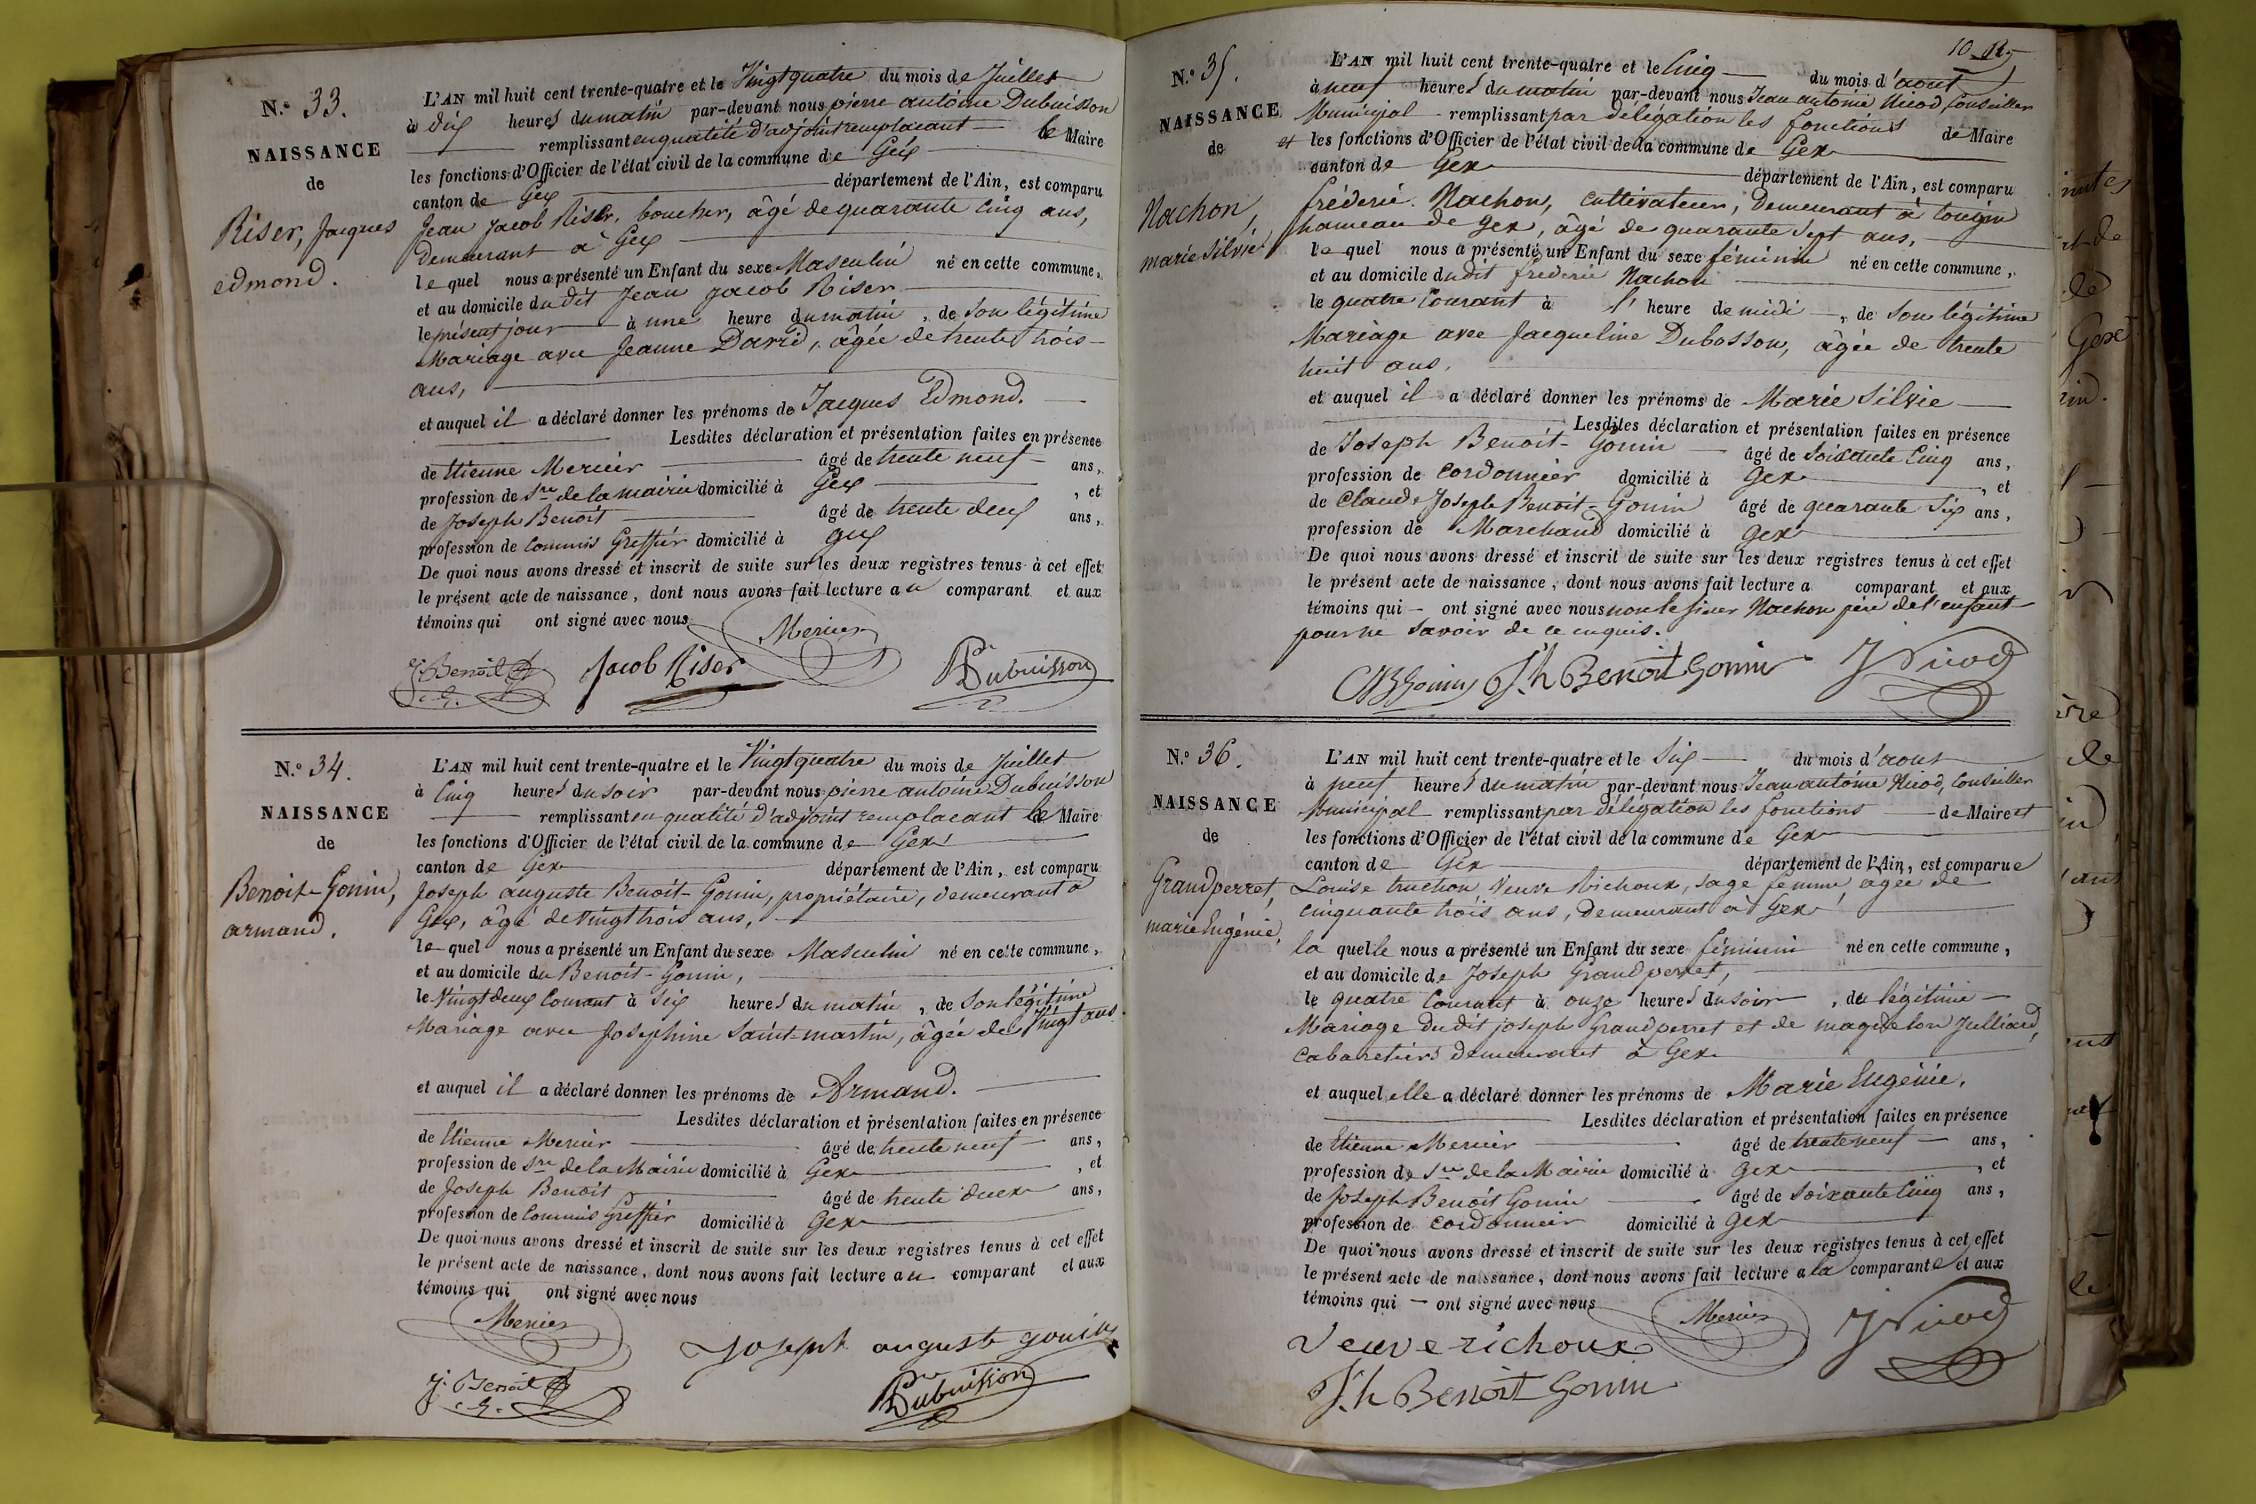 N.° 33.
NAISSANCE
de
Riser, Jacques
edmond.
L'AN mil huit cent trente-quatre et le Vingt quatre du mois de Juillet
à dix heures du matin par-devant nous pierre antoine Dubuisson
remplissant en qualité d'adjoint remplacant le Maire
les fonctions d'Officier de l'état civil de la commune de Gex
canton de Gex département de l'Ain, est comparu
Jean Jacob Riser, boucher, âgé de quarante cinq ans,
demeurant à Gex
le quel nous a présenté un Enfant du sexe Masculin né en cette commune,
et au domicile du dit Jean Jacob Riser
le présent jour à une heure du matin, de son légitime
Mariage avec Jeanne David, âgée de trente trois
ans,
et auquel il a déclaré donner les prénoms de Jacques Edmond.
Lesdites déclaration et présentation faites en présence
de Etienne Mercier âgé de trente neuf ans,
profession de Sre de la mairie domicilié à Gex, et
de Joseph Benoit âgé de trente deux ans,
profession de Commis Greffier domicilié à gex
De quoi nous avons dressé et inscrit de suite sur les deux registres tenus à cet effet
le présent acte de naissance, dont nous avons fait lecture au comparant et aux
témoins qui ont signé avec nous
Mercier
J. Benoit Jacob Riser Dubuisson
N.° 34.
NAISSANCE
de
Benoit-Gonin,
armand.
L'AN mil huit cent trente-quatre et le Vingt quatre du mois de Juillet
à Cinq heures du soir par-devant nous pierre antoine Dubuisson
remplissant en qualité d'adjoint remplacant le Maire
les fonctions d'Officier de l'état civil de la commune de Gex
canton de Gex département de l'Ain, est comparu
Joseph auguste Benoit-Gonin, propriétaire, demeurant à
Gex, âgé de vingt trois ans,
le quel nous a présenté un Enfant du sexe Masculin né en cette commune,
et au domicile du Benoit-Gonin,
le Vingt deux Courant à six heures du matin, de son légitime
Mariage avec Josephine Saint-martin, âgée de Vingt ans
et auquel il a déclaré donner les prénoms de Armand.
Lesdites déclaration et présentation faites en présence
de Etienne Mercier âgé de trente neuf ans,
profession de Sre de la Mairie domicilié à Gex, et
de Joseph Benoit âgé de trente deux ans,
profession de Commis Greffier domicilié à Gex
De quoi nous avons dressé et inscrit de suite sur les deux registres tenus à cet effet
le présent acte de naissance, dont nous avons fait lecture au comparant et aux
témoins qui ont signé avec nous
Mercier
Joseph auguste gonin
J. Benoit Dubuisson
10
N.° 35.
NAISSANCE
de
Nachon,
marie Silvie
L'AN mil huit cent trente-quatre et le Cinq du mois d'aout
à neuf heures du matin par-devant nous Jean antoine Nicod, Conseiller
Municipal remplissant par délégation les fonctions de Maire
et les fonctions d'Officier de l'état civil de la commune de Gex
canton de Gex département de l'Ain, est comparu
fréderic Nachon, cultivateur, demeurant à tougin
hameau de gex, âgé de quarante sept ans,
le quel nous a présenté un Enfant du sexe féminin né en cette commune,
et au domicile du dit fréderic Nachon
le quatre Courant à l'heure de midi, de son légitime
Mariage avec Jacqueline Dubosson, âgée de trente
huit ans,
et auquel il a déclaré donner les prénoms de Marie Silvie
Lesdites déclaration et présentation faites en présence
de Joseph Benoit-Gonin âgé de soixante Cinq ans,
profession de cordonnier domicilié à gex, et
de Claude Joseph Benoit-Gonin âgé de quarante six ans,
profession de Marchand domicilié à gex
De quoi nous avons dressé et inscrit de suite sur les deux registres tenus à cet effet
le présent acte de naissance, dont nous avons fait lecture a comparant et aux
témoins qui ont signé avec nous non le sieur Nachon père de l'enfant
pour ne savoir de ce enquis.
CJBGonin Jh Benoit Gonin JNicod
N.° 36.
NAISSANCE
de
Grandperret,
marie Eugénie,
L'AN mil huit cent trente-quatre et le Six du mois d'aout
à neuf heures du matin par-devant nous Jean antoine Nicod, Conseiller
Municipal remplissant par délégation les fonctions de Maire et
les fonctions d'Officier de l'état civil de la commune de Gex
canton de Gex département de l'Ain, est comparue
Louise truchon Veuve Richoux, sage femme, agée de
cinquante trois ans, demeurant à Gex
la quelle nous a présenté un Enfant du sexe féminin né en cette commune,
et au domicile de Joseph Grandperret,
le quatre Courant à onze heures du soir, du légitime
Mariage du dit joseph Grandperret et de magdelon Julliard,
cabaretiers demeurant à Gex
et auquel elle a déclaré donner les prénoms de Marie Eugénie,
Lesdites déclaration et présentation faites en présence
de Etienne Mercier âgé de trente neuf ans,
profession de Sre de la Mairie domicilié à gex, et
de Joseph Benoit Gonin âgé de soixante Cinq ans,
profession de cordonnier domicilié à gex
De quoi nous avons dressé et inscrit de suite sur les deux registres tenus à cet effet
le présent acte de naissance, dont nous avons fait lecture a la comparante et aux
témoins qui ont signé avec nous
Mercier JNicod
Veuve richoux
Jh Benoit Gonin